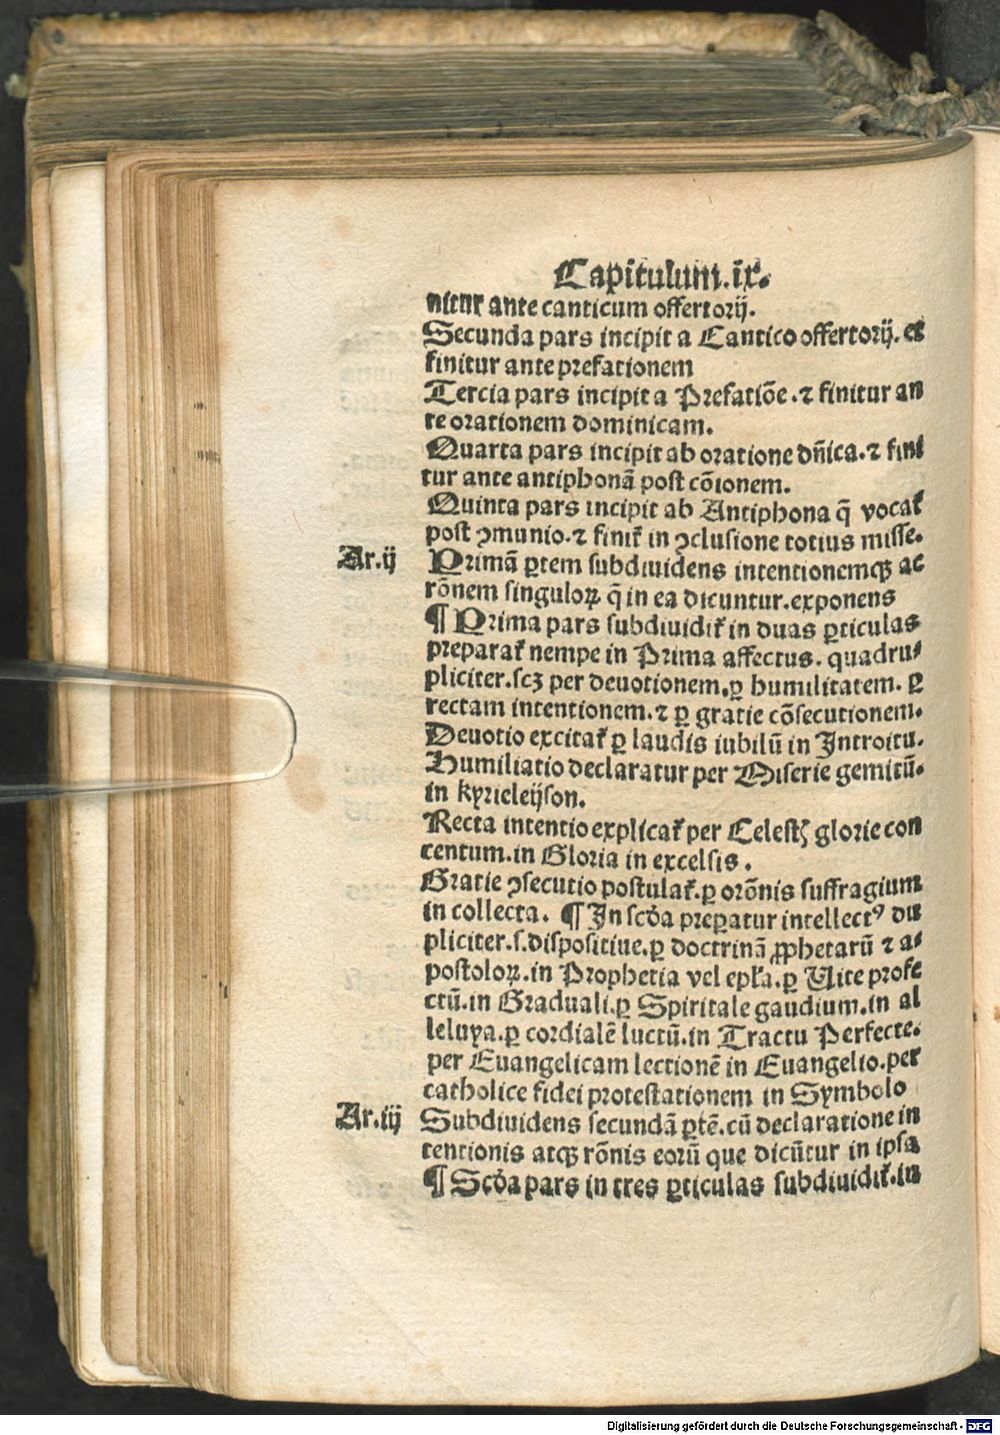 Capitulum .ix.
nitur ante canticum offertorij.
Secunda pars incipit a Cantico offertorij. et
finitur ante prefationem
Tercia pars incipit a Prefatiõe .⁊ finitur an
te orationem dominicam.
Quarta pars incipit ab oratione dñica .⁊ fini
tur ante antiphonã post cõionem.
Quinta pars incipit ab Antiphona q̃ vocat᷑
post ꝯmunio .⁊ finit᷑ in ꝯclusione totius misse.
Ar.ij Primã ꝑtem subdiuidens intentionemqꝫ ac
rõnem singuloꝝ q̃ in ea dicuntur. exponens
¶ Prima pars subdiuidit᷑ in duas ꝑticulas
preparat᷑ nempe in Prima affectus. quadru⸗
pliciter. scꝫ per deuotionem. ꝑ humilitatem. ꝑ
rectam intentionem. ⁊ ꝑ gratie cõsecutionem.
Deuotio excitat᷑ ꝑ laudis iubilũ in Introitu.
Humiliatio declaratur per Miserie gemitũ.
in kyrieleijson.
Recta intentio explicat᷑ per Celestꝭ glorie con
centum. in Gloria in excelsis .
Gratie ꝯsecutio postulat᷑. ꝑ orõnis suffragium
in collecta. ¶ In scd̃a preꝑatur intellectꝰ du
pliciter. s. dispositiue. ꝑ doctrinã ꝓphetarũ ⁊ a⸗
postoloꝝ. in Prophetia vel epl̃a. ꝑ Vite profe
ctũ. in Graduali. ꝑ Spiritale gaudium. in al
leluya. ꝑ cordialẽ luctũ. in Tractu Perfecte.
per Euangelicam lectionẽ in Euangelio. per
catholice fidei protestationem in Symbolo
Ar.iij Subdiuidens secundã ꝑtẽ. cũ declaratione in
tentionis atqꝫ rõnis eorũ que dicũtur in ipsa
¶ Scd̃a pars in tres ꝑticulas subdiuidit᷑. in
Digitalisierung gefördert durch die Deutsche Forschungsgemeinschaft - DFG